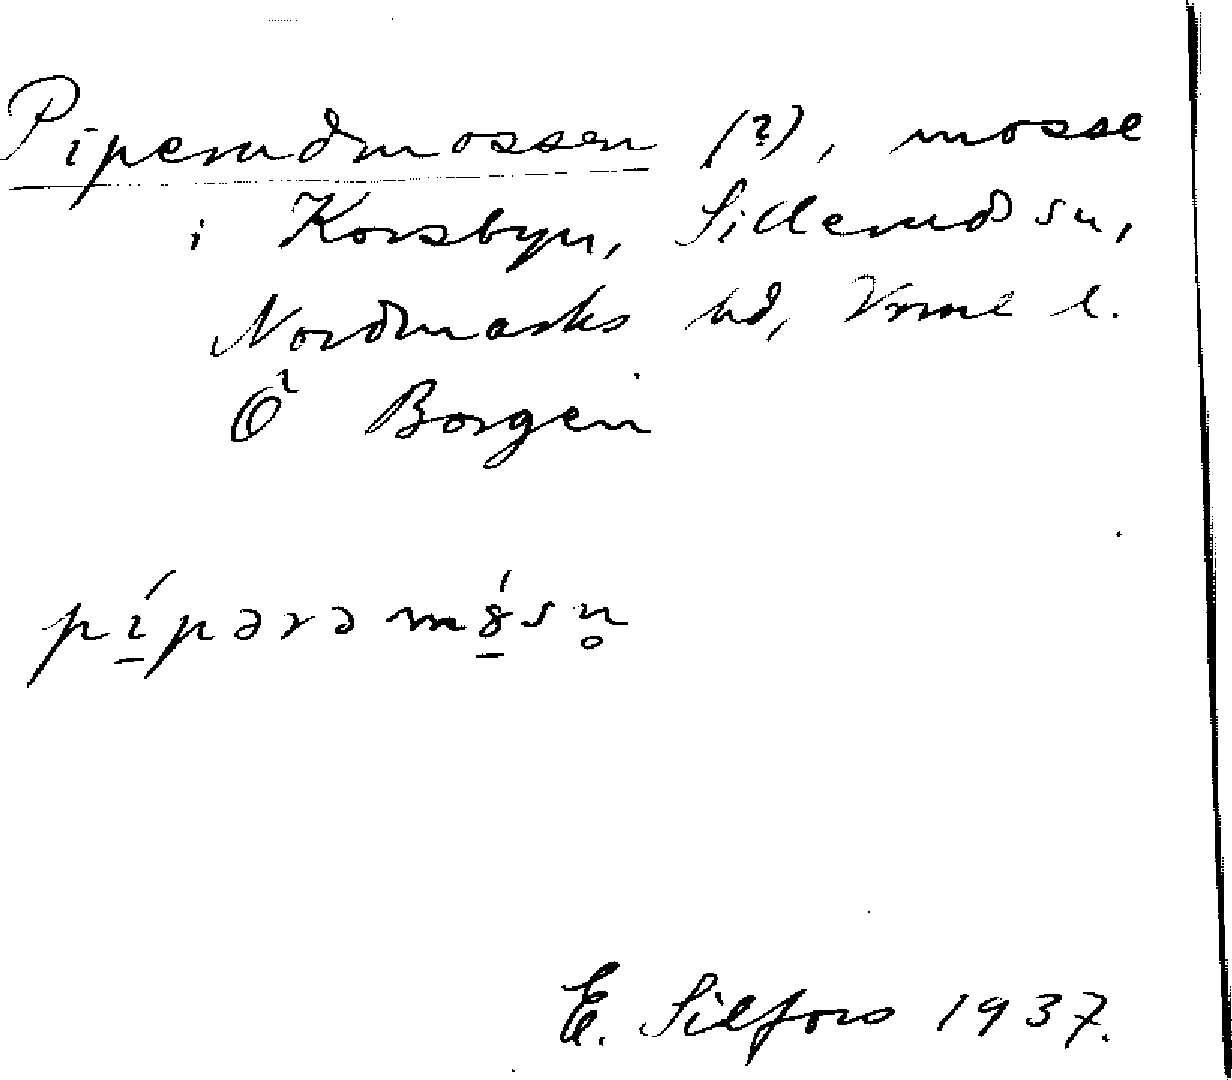 Piperudmossen (?), mosse
i Korsbyn, Sillerud sn,
Nordmarks hd, Vrml l.
Ö Borgen
pípərəmósn̥
E. Silfors 1937.